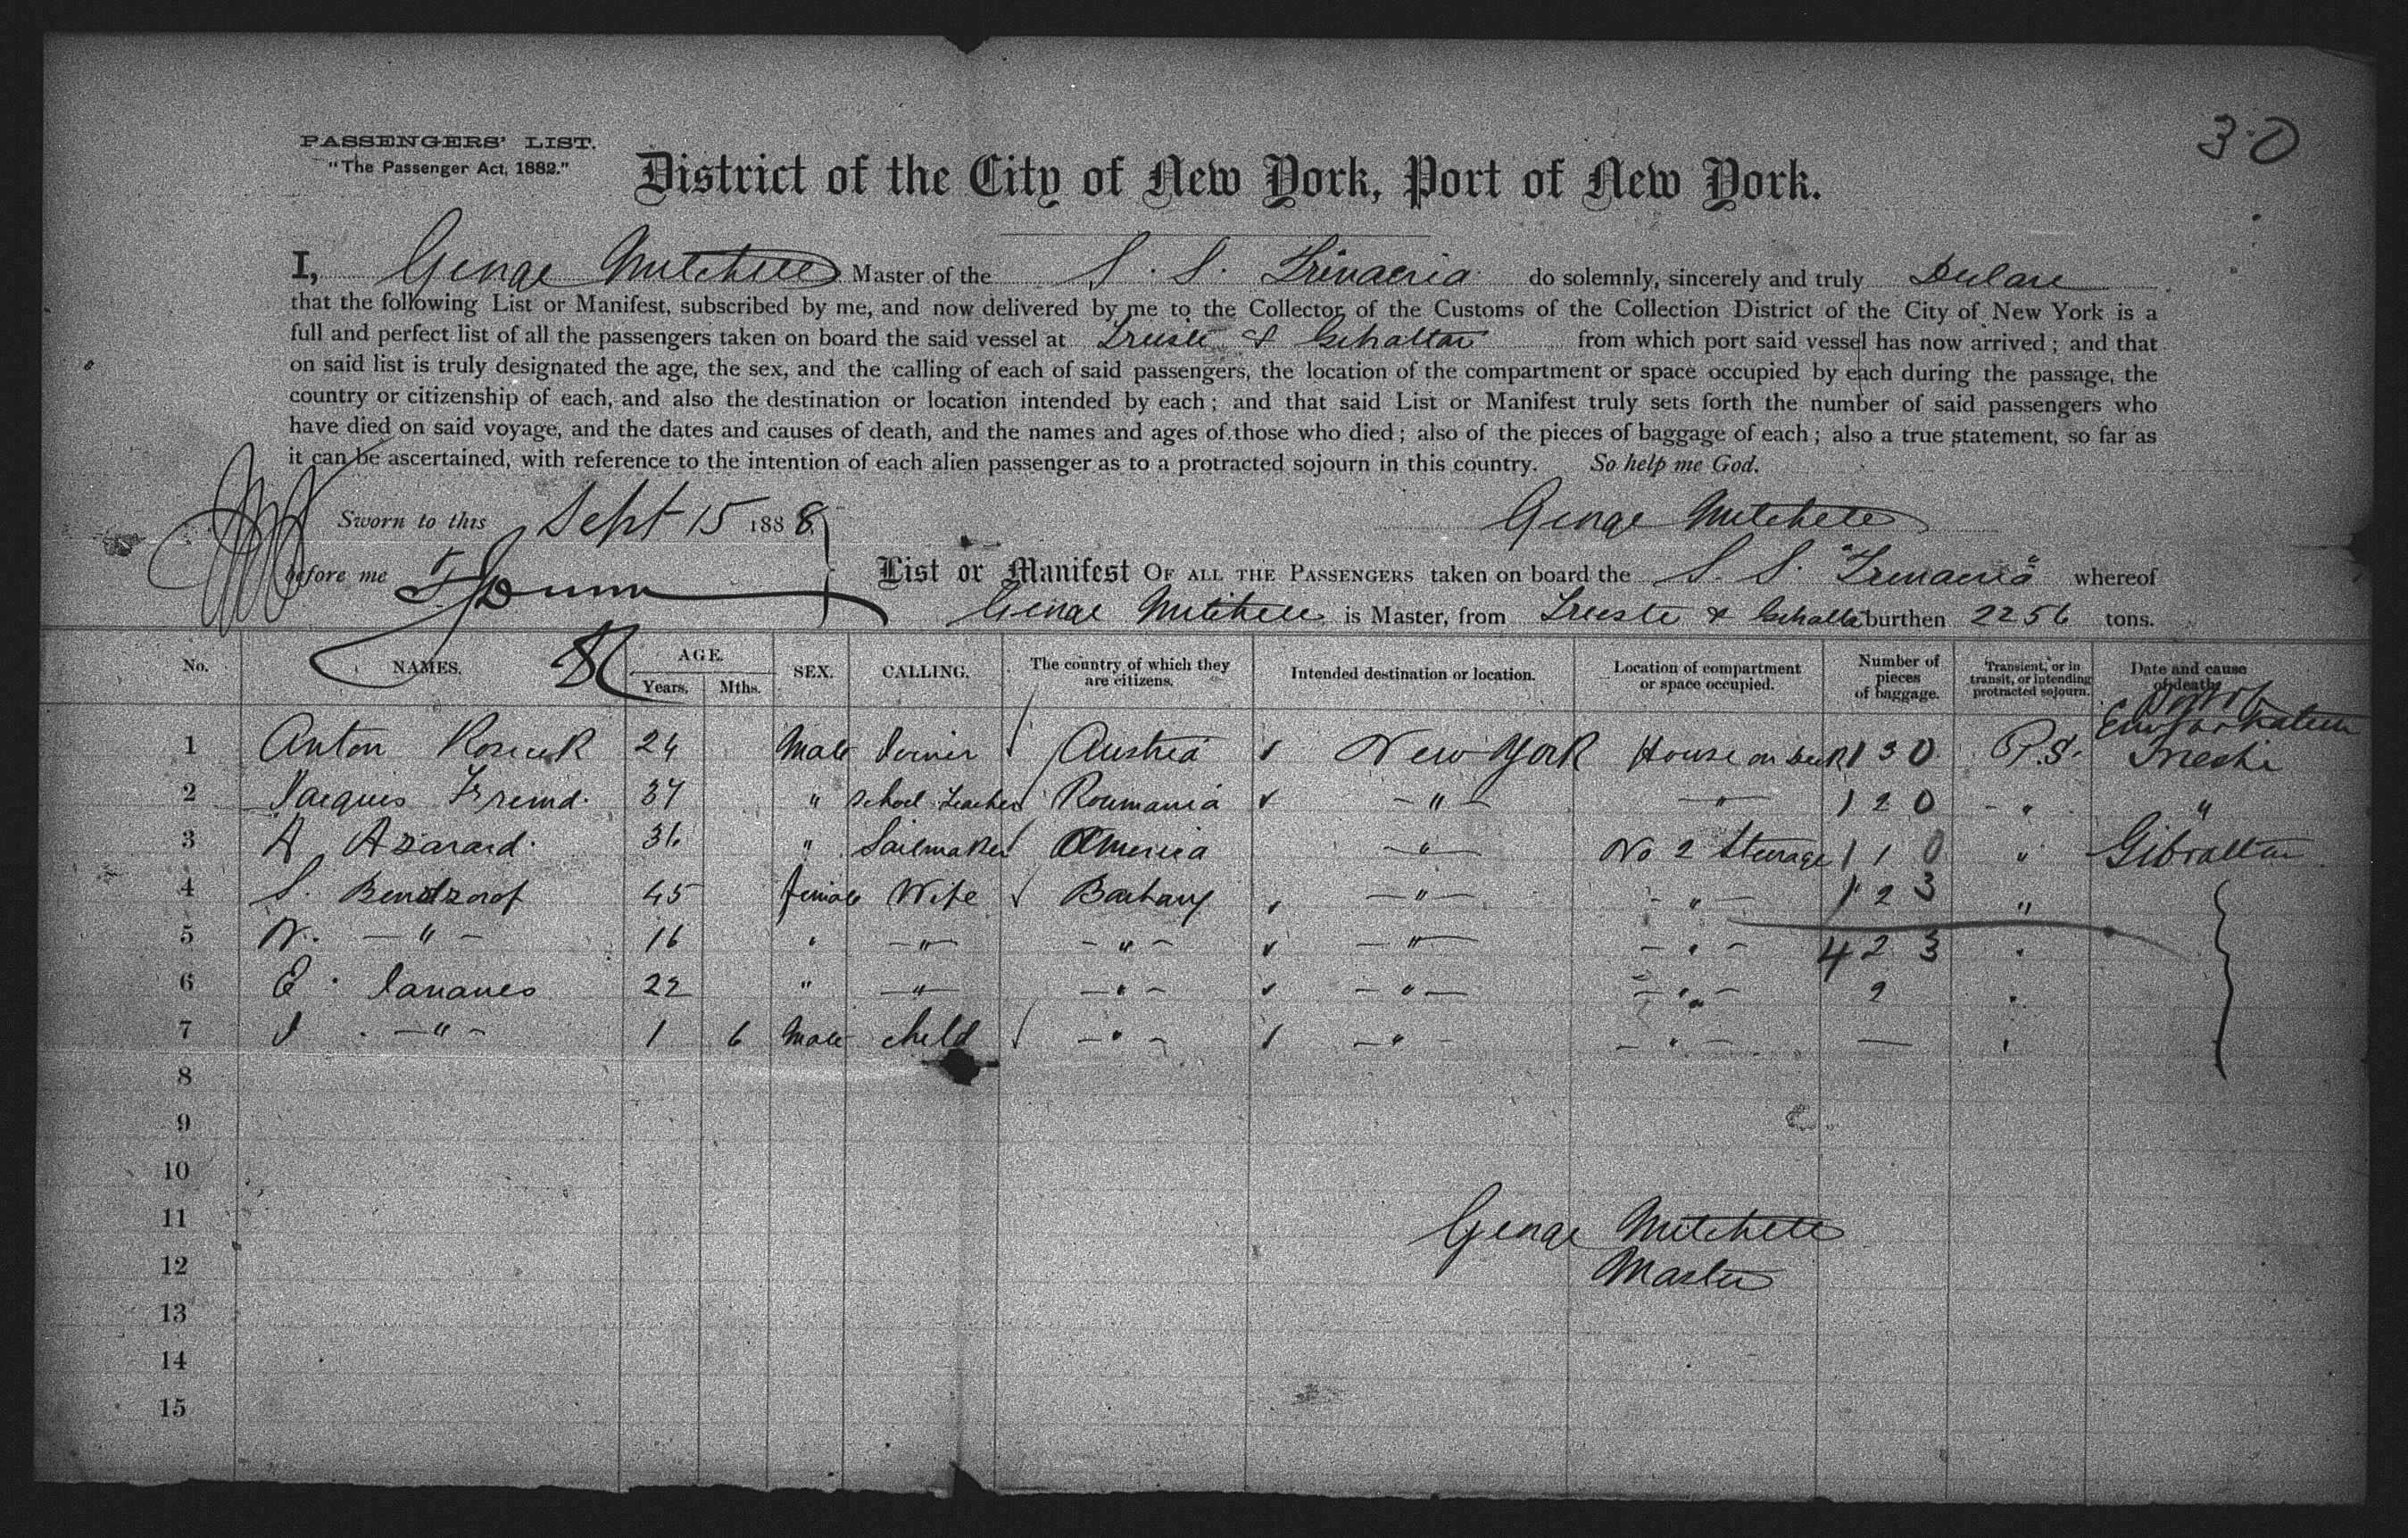 30
PASSENGERS' LIST.
"The Passenger Act, 1882."
District of the City of New York, Port of New York.
I, George Mitchell Master of the S. S. Trinacria do solemnly, sincerely and truly Declare
that the following List or Manifest, subscribed by me, and now delivered by me to the Collector of the Customs of the Collection District of the City of New York is a
full and perfect list of all the passengers taken on board the said vessel at Trieste & Gibraltar from which port said vessel has now arrived; and that
on said list is truly designated the age, the sex, and the calling of each of said passengers, the location of the compartment or space occupied by each during the passage, the
country or citizenship of each, and also the destination or location intended by each; and that said List or Manifest truly sets forth the number of said passengers who
have died on said voyage, and the dates and causes of death, and the names and ages of those who died; also of the pieces of baggage of each; also a true statement, so far as
it can be ascertained, with reference to the intention of each alien passenger as to a protracted sojourn in this country. So help me God.
Sworn to this Sept 15 1888 George Mitchell
before me Dunn List or Manifest OF ALL THE PASSENGERS taken on board the S. S. "Trinacria" whereof
George Mitchell is Master, from Trieste & Gibraltar burthen 2256 tons.
No. NAMES. AGE. Years. Mths. SEX. CALLING. The country of which they are citizens. Intended destination or location. Location of compartment or space occupied. Number of pieces of baggage. Transient, or in transit, or intending protracted sojourn. Date and cause of death.
Port of
Embarkation
1 Anton 24 Male Joiner Austria New York House on deck 1 3 0 P.S. Trieste
2 Jacques Fremd 37 " School Teacher Roumania — " — — " — 1 2 0 " "
3 A Azarard 36 " Sailmaker America — " — No 2 Steerage 1 1 0 " Gibraltar
4 S. 45 Female Wife Barbary — " — — " — 1 2 3 "
5 N. — " — 16 " — " — — " — — " — — " — 4 2 3 "
6 E. 22 " — " — — " — — " — — " — 2 "
7 J. — " — 1 6 Male child — " — — " — — " — — "
8
9
10
11 George Mitchell
12 Master
13
14
15